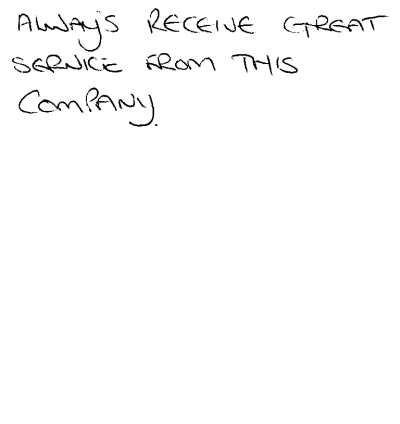 ALWAYS RECEIVE GREAT
SERVICE FROM THIS
COMPANY.